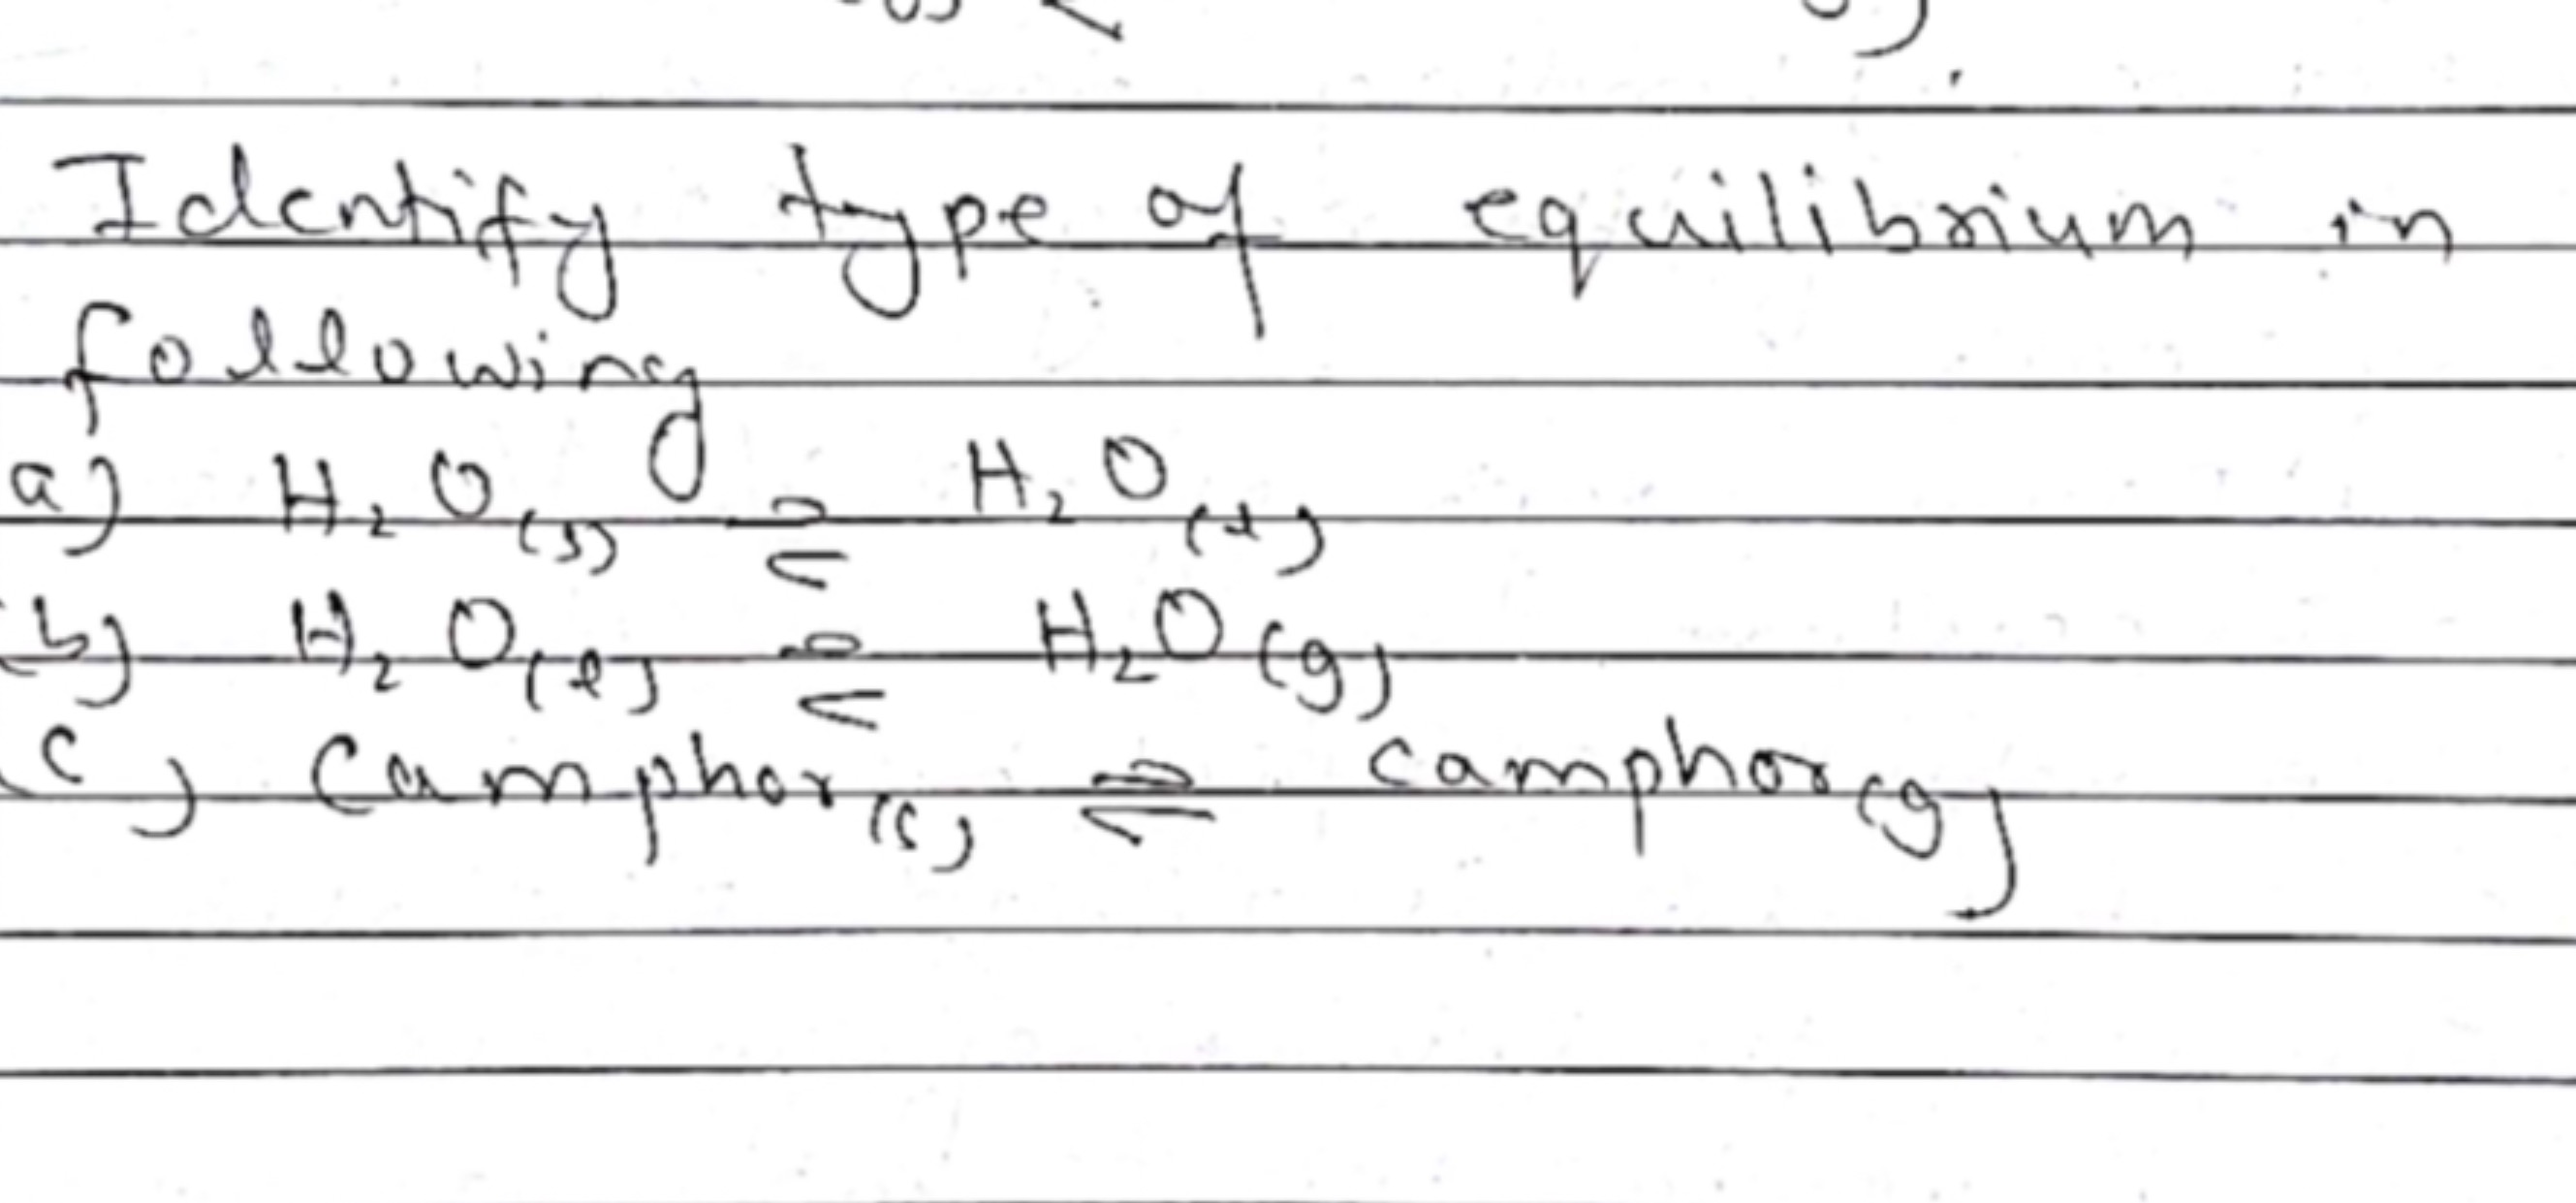 Identify type of equilibrium in
following
a) H₂O(s) ⇌ H₂O(l)
(b) H₂O(l) ⇌ H₂O(g)
(c) Camphor(s) ⇌ camphor(g)